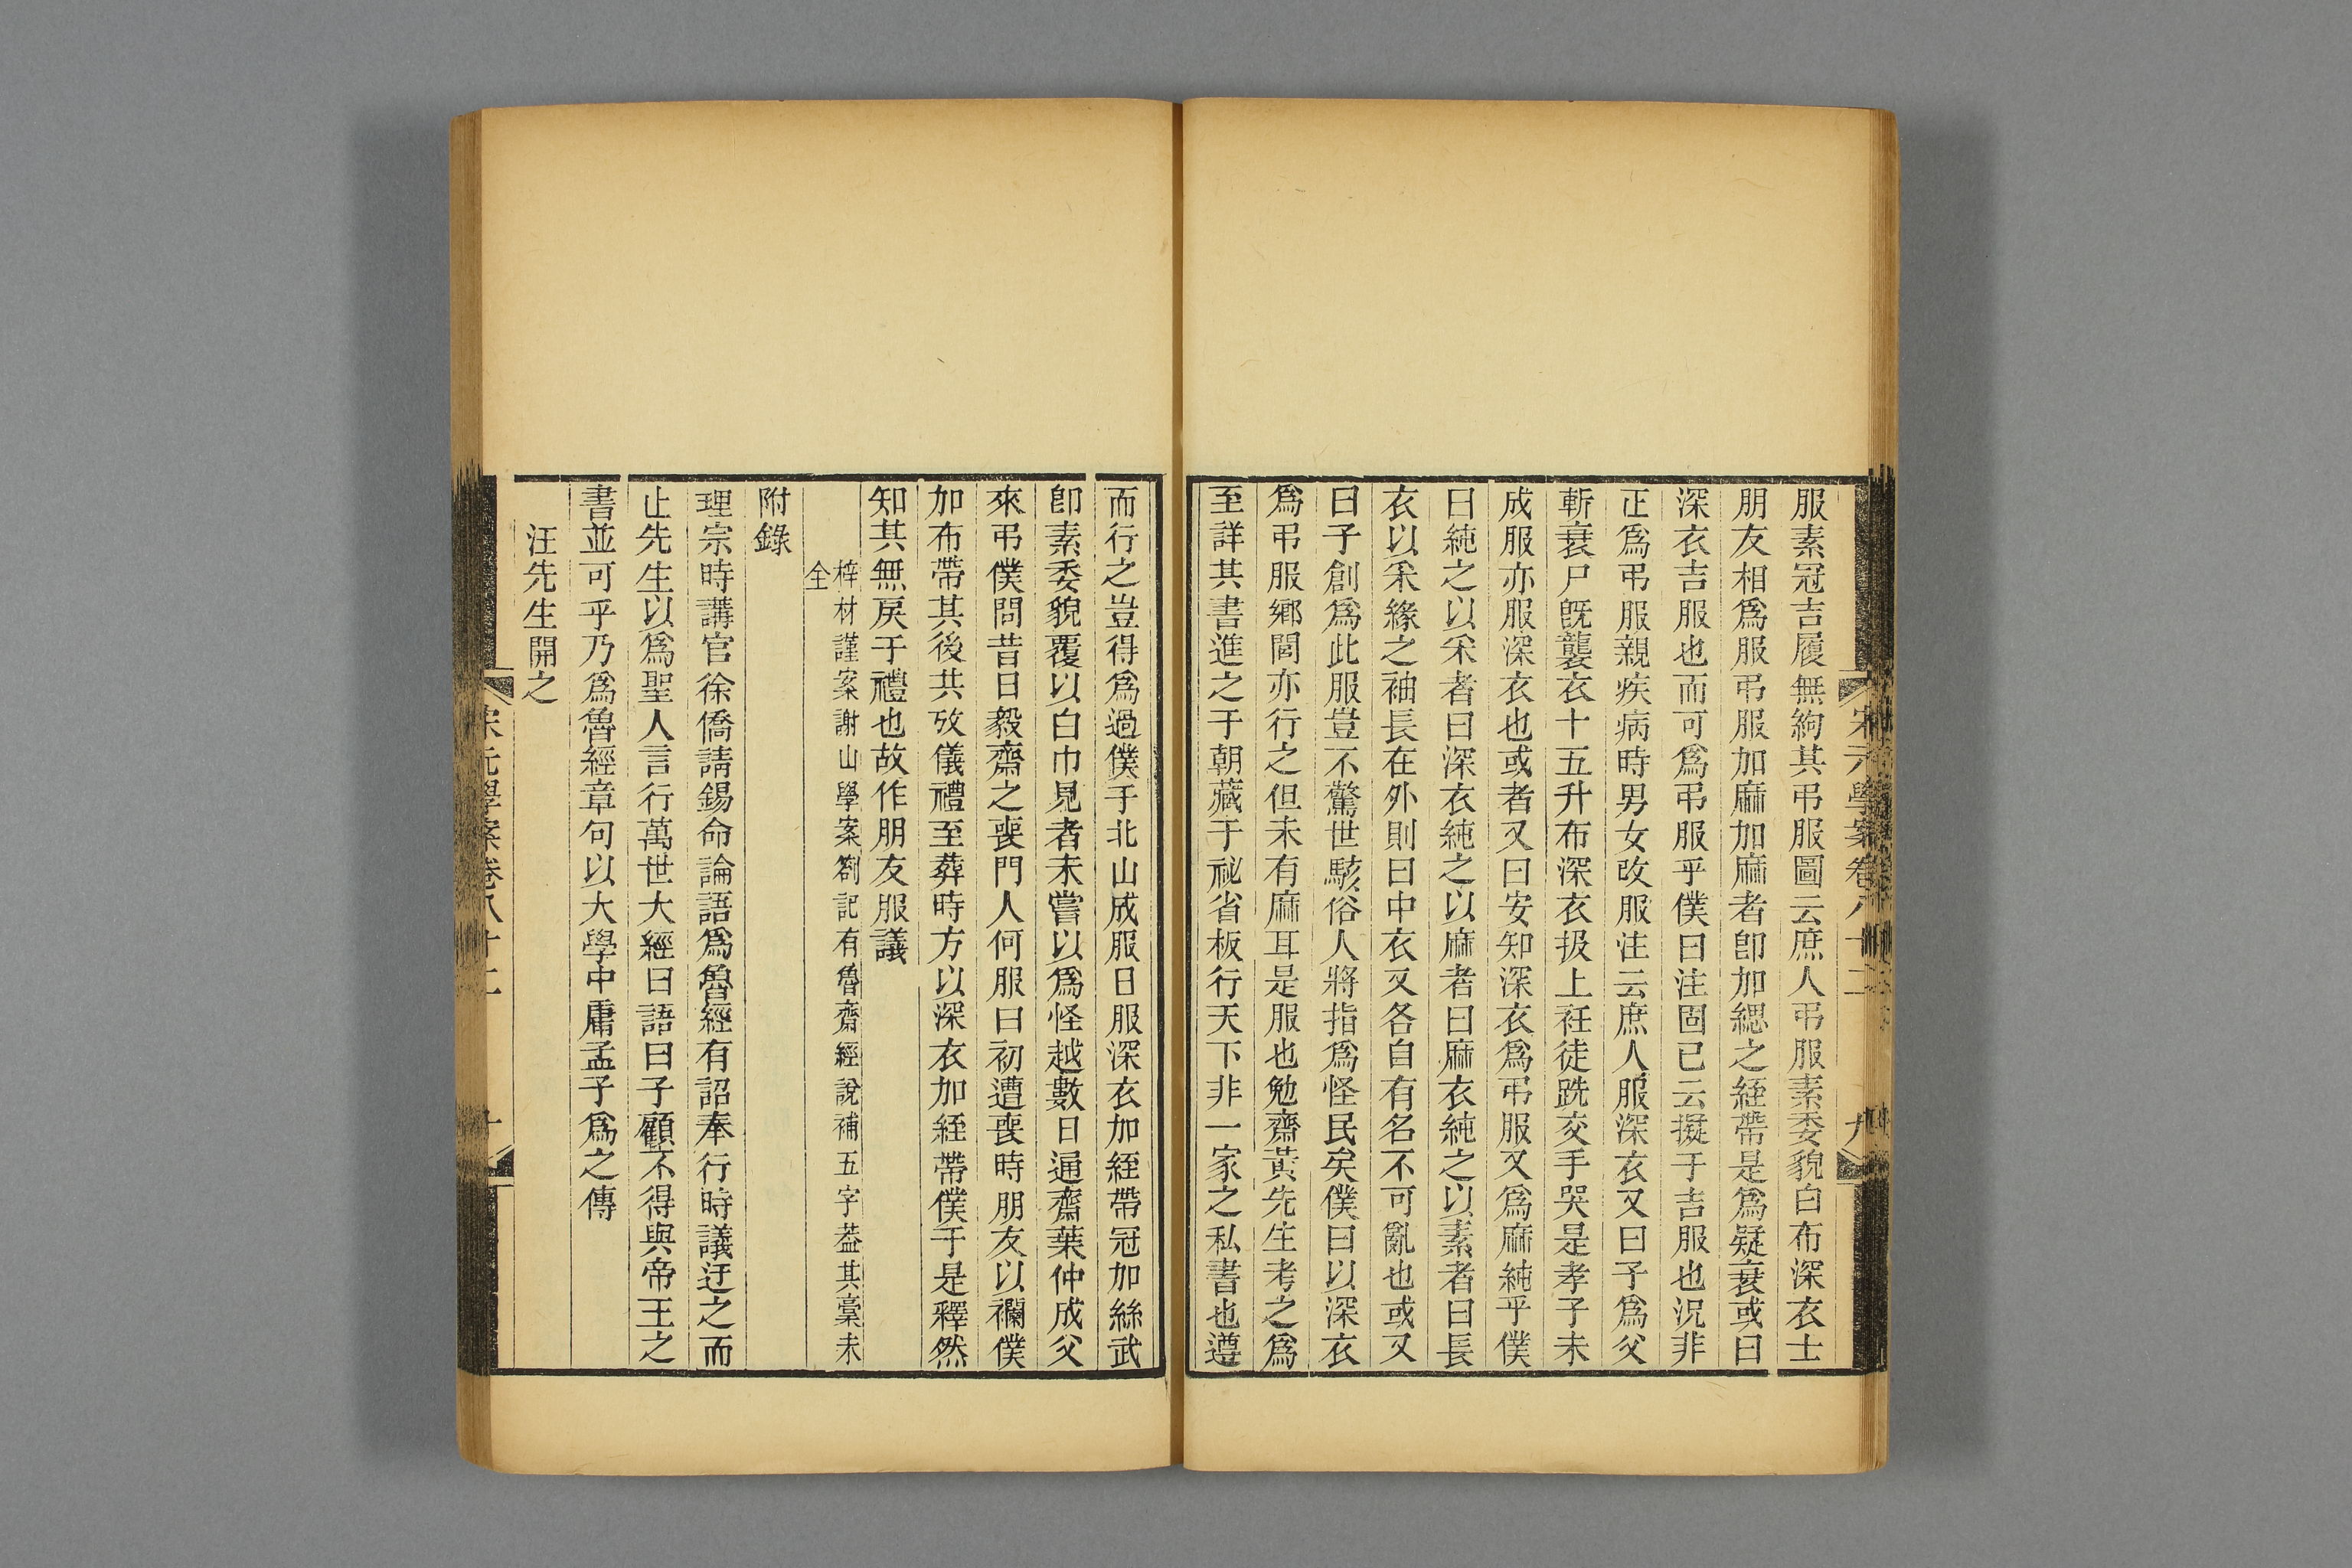 宋元學案卷八十二
九
服素冠吉履無絇其弔服圖云庶人弔服素委貌白布深衣士
朋友相爲服弔服加麻加麻者卽加緦之絰帶是爲疑衰或曰
深衣吉服也而可爲弔服乎僕曰注固已云擬于吉服也況非
正爲弔服親疾病時男女改服注云庶人服深衣又曰子爲父
斬衰尸旣襲衣十五升布深衣扱上衽徒跣交手哭是孝子未
成服亦服深衣也或者又曰安知深衣爲弔服又爲麻純乎僕
曰純之以采者曰深衣純之以麻者曰麻衣純之以素者曰長
衣以采緣之袖長在外則曰中衣又各自有名不可亂也或又
曰子創爲此服豈不驚世駭俗人將指爲怪民矣僕曰以深衣
爲弔服鄉閭亦行之但未有麻耳是服也勉齋黃先生考之爲
至詳其書進之于朝藏于祕省板行天下非一家之私書也遵
而行之豈得爲過僕于北山成服日服深衣加絰帶冠加絲武
卽素委貌覆以白巾見者未嘗以爲怪越數日通齋葉仲成父
來弔僕問昔日毅齋之喪門人何服曰初遭喪時朋友以襴僕
加布帶其後共攷儀禮至葬時方以深衣加絰帶僕于是釋然
知其無戾于禮也故作朋友服議
梓材謹案謝山學案劄記有魯齋經說補五字葢其稾未
全
附錄
理宗時講官徐僑請錫命論語爲魯經有詔奉行時議迂之而
止先生以爲聖人言行萬世大經曰語曰子顧不得與帝王之
書並可乎乃爲魯經章句以大學中庸孟子爲之傳
汪先生開之
宋元學案卷八十二
十